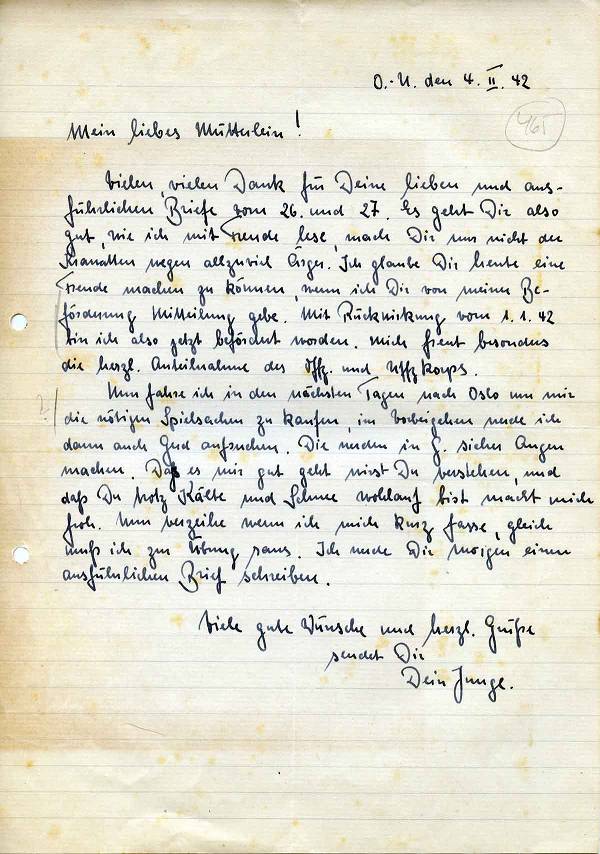 O.-U. den 4. II. 42
465
Mein liebes Mütterlein!
Vielen, vielen Dank für Deine lieben und aus-
führlichen Briefe vom 26. und 27. Es geht Dir also
gut, wie ich mit Freude lese, mach Dir nur nicht der
Krawatten wegen allzuviel Ärger. Ich glaube Dir heute eine
Freude machen zu können, wenn ich Dir von meiner Be-
förderung Mitteilung gebe. Mit Rückwirkung vom 1.1.42
bin ich also jetzt befördert worden. Mich freut besonders
die herzl. Anteilnahme des Offz. und Uffzkorps.
Nun fahre ich in den nächsten Tagen nach Oslo um mir
?
die nötigen Spielsachen zu kaufen, im Vorbeigehen werde ich
dann auch Gud aufsuchen. Die werden in G. sicher Augen
machen. Daß es mir gut geht wirst Du verstehen, und
daß Du trotz Kälte und Schnee wohlauf bist macht mich
froh. Nun verzeihe wenn ich mich kurz fasse, gleich
muß ich zur Übung raus. Ich werde Dir morgen einen
ausführlichen Brief schreiben.
Viele gute Wünsche und herzl. Grüße
sendet Dir
Dein Junge.